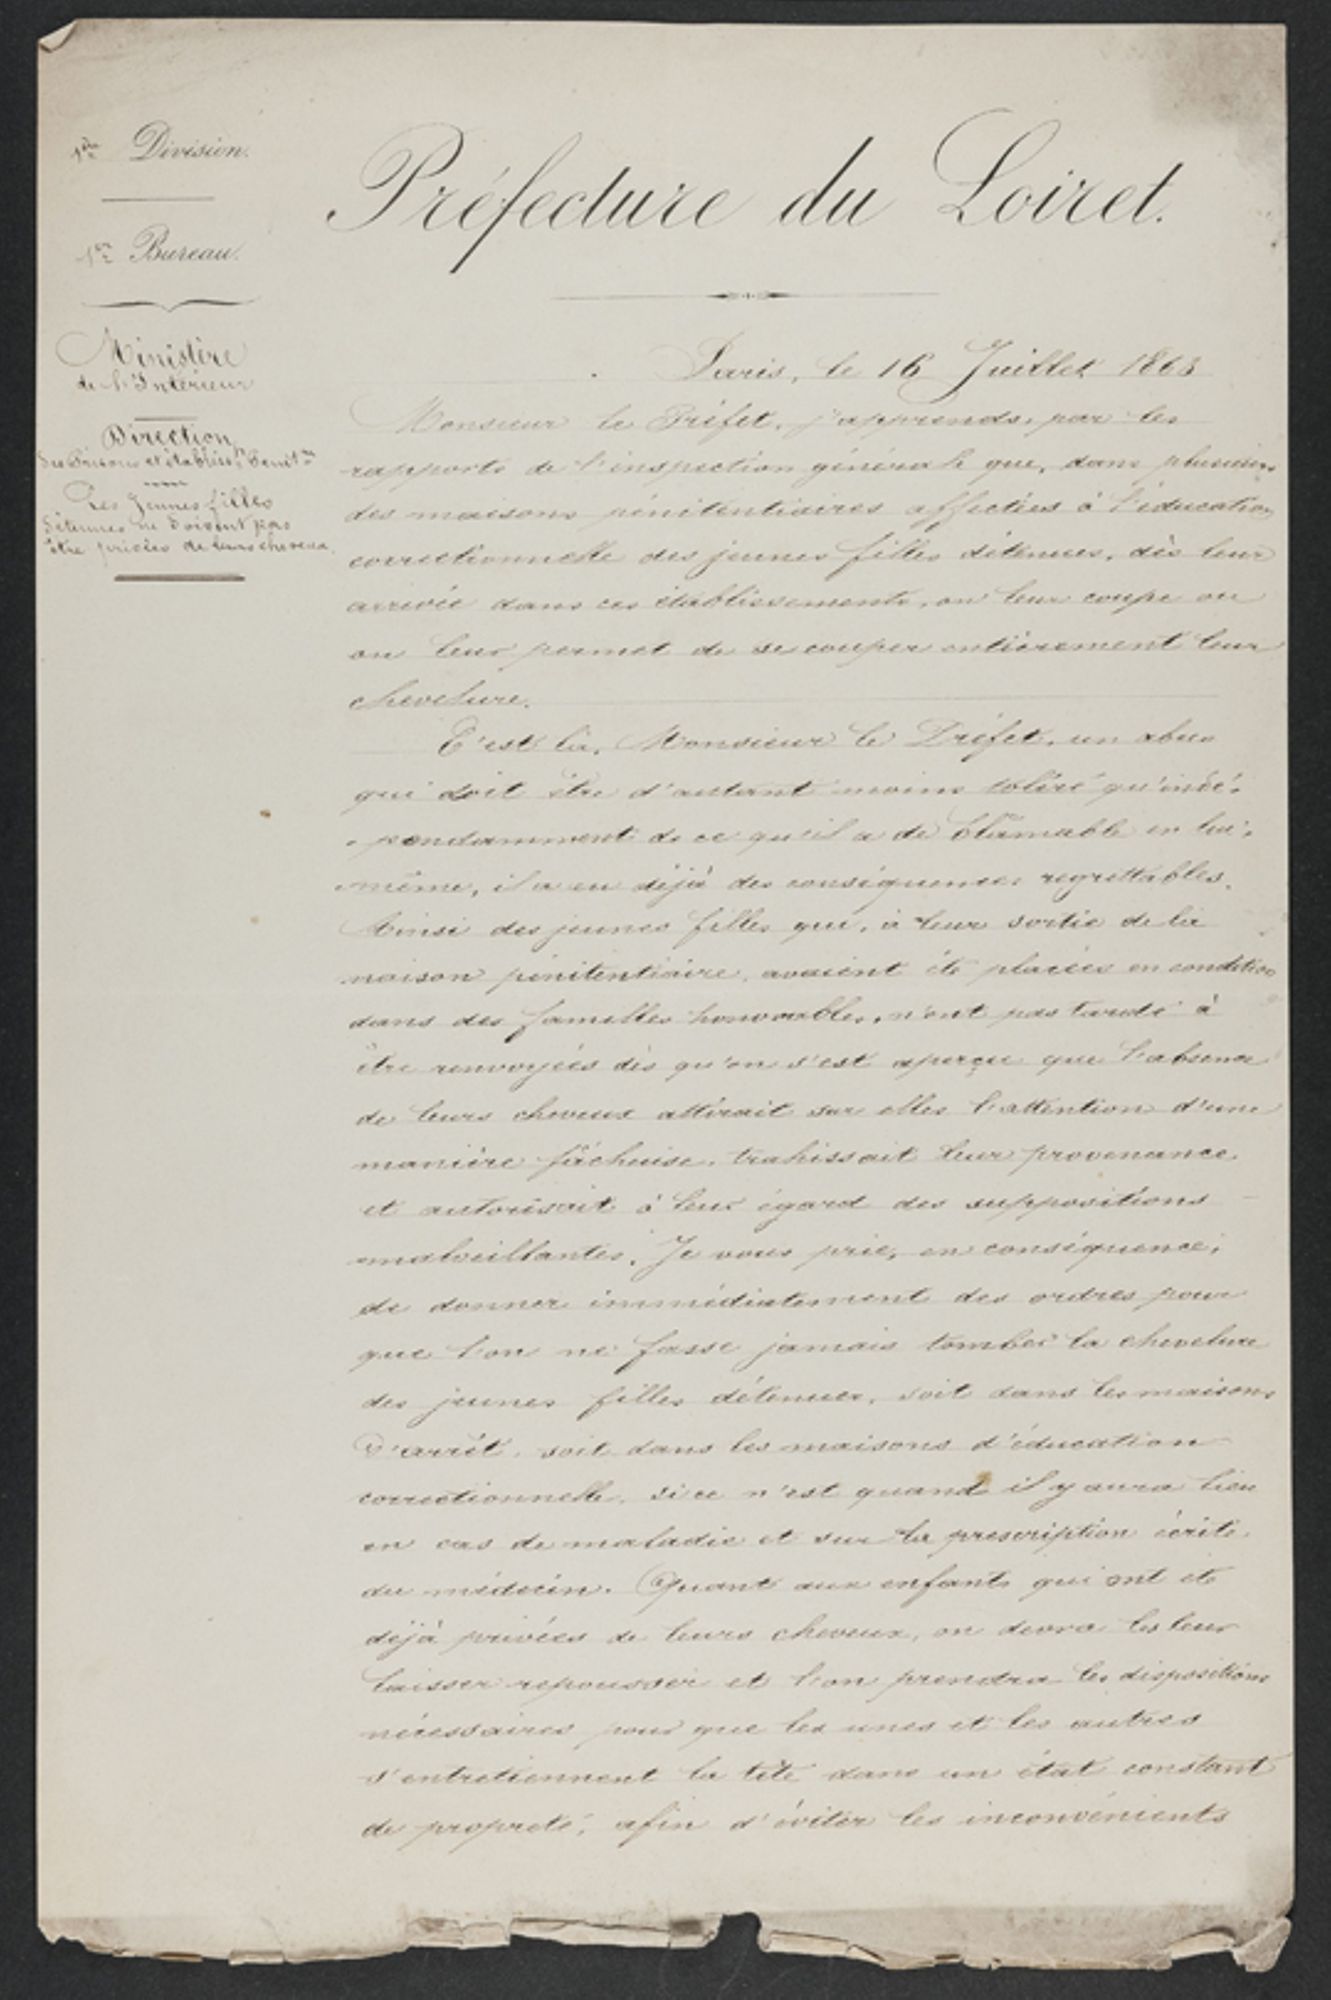 1ère Division.
1er Bureau.
Ministère
de l'Intérieur
Direction
des Prisons et établiss.ts Pénit.res
Les Jeunes filles
détenues ne doivent pas
être privées de leurs cheveux.
Préfecture du Loiret.
Paris, le 16 Juillet 1863
Monsieur le Préfet, j'apprends, par les
rapports de l'inspection générale que, dans plusieurs
des maisons pénitentiaires affectées à l'éducation
correctionnelle des jeunes filles détenues, dès leur
arrivée dans ces établissements, on leur coupe ou
on leur permet de se couper entièrement leur
chevelure.
C'est là, Monsieur le Préfet, un abus
qui doit être d'autant moins toléré qu'indé-
-pendamment de ce qu'il a de blâmable en lui-
même, il a eu déjà des conséquences regrettables.
Ainsi des jeunes filles qui, à leur sortie de la
maison pénitentiaire, avaient été placées en condition
dans des familles honorables, n'ont pas tardé à
être renvoyées dès qu'on s'est aperçu que l'absence
de leurs cheveux attirait sur elles l'attention d'une
manière fâcheuse, trahissait leur provenance,
et autorisait à leur égard des suppositions
malveillantes. Je vous prie, en conséquence,
de donner immédiatement des ordres pour
que l'on ne fasse jamais tomber la chevelure
des jeunes filles détenues, soit dans les maisons
d'arrêt, soit dans les maisons d'éducation
correctionnelle, si ce n'est quand il y aura lieu
en cas de maladie et sur la prescription écrite
du médecin. Quant aux enfants qui ont été
déjà privées de leurs cheveux, on devra les leur
laisser repousser et l'on prendra les dispositions
nécessaires pour que les unes et les autres
s'entretiennent la tête dans un état constant
de propreté, afin d'éviter les inconvénients